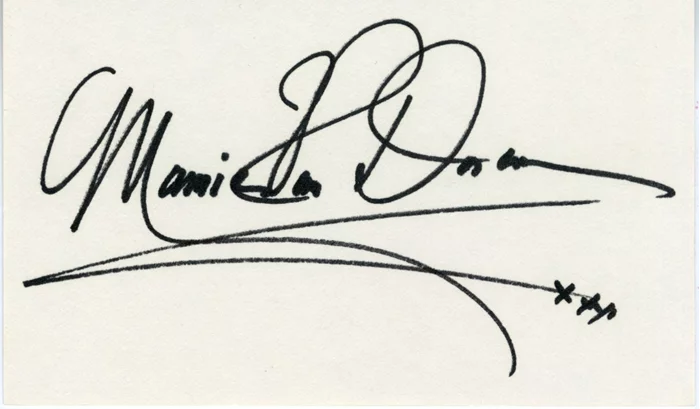 Mamie Van Doren
xxx